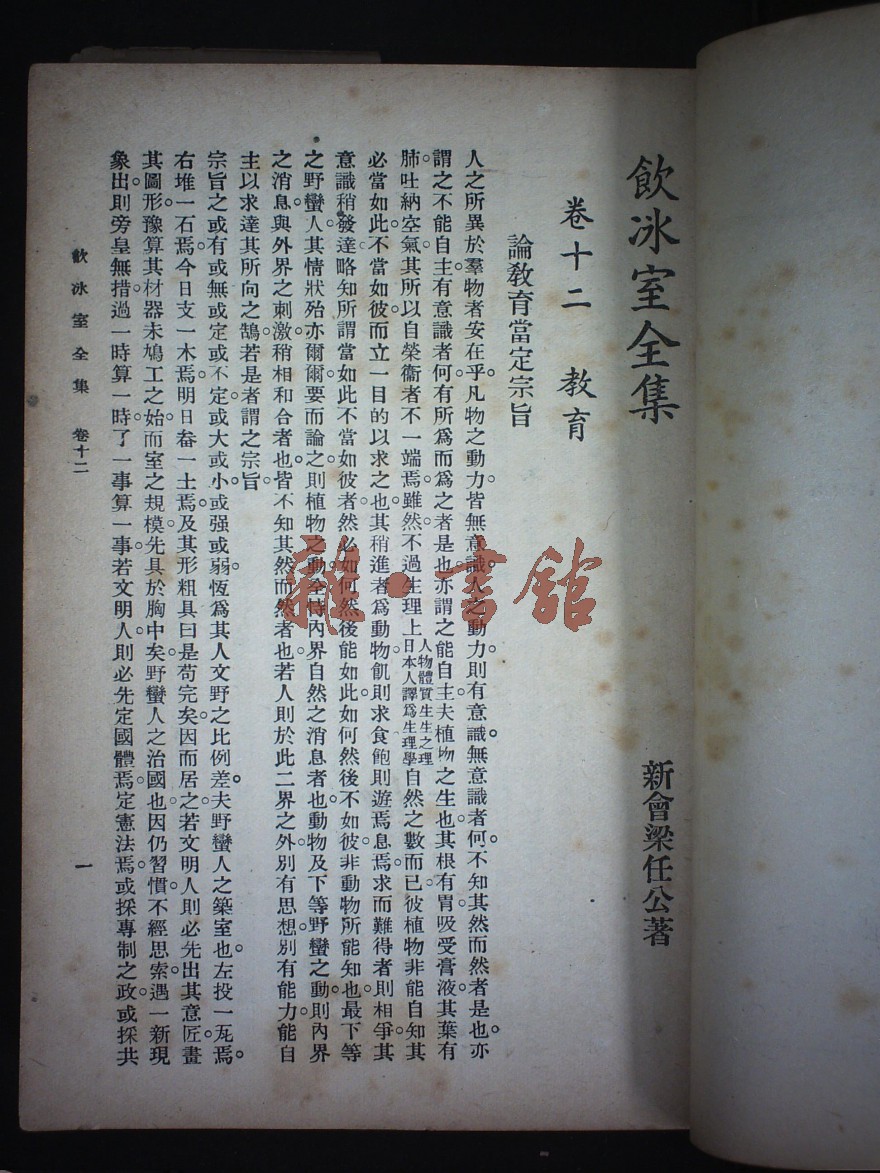 飲冰室全集
新會梁任公著
卷十二　教育
論教育當定宗旨
人之所異於羣物者安在乎。凡物之動力皆無意識。人之動力則有意識。無意識者何。不知其然而然者是也。亦
謂之不能自主。有意識者何。有所爲而爲之者是也。亦謂之能自主。夫植物之生也。其根有胃。吸受膏液。其葉有
肺。吐納空氣。其所以自榮衞者不一端焉。雖然。不過生理上人物體質生生之理日本人譯爲生理學自然之數而已。彼植物非能自知其
必當如此。不當如彼。而立一目的以求之也。其稍進者爲動物。飢則求食。飽則遊焉息焉。求而難得者則相爭。其
意識稍發達。略知所謂當如此不當如彼者。然必如何然後能如此。如何然後不如彼。非動物所能知也。最下等
之野蠻人。其情狀殆亦爾爾。要而論之。則植物之動。全恃內界自然之消息者也。動物及下等野蠻之動。則內界
之消息。與外界之刺激。稍相和合者也。皆不知其然而然者也。若人則於此二界之外。別有思想。別有能力。能自
主以求達其所向之鵠。若是者謂之宗旨。
宗旨之或有或無。或定或不定。或大或小。或强或弱。恆爲其人文野之比例差。夫野蠻人之築室也。左投一瓦焉。
右堆一石焉。今日支一木焉。明日畚一土焉。及其形粗具曰是苟完矣。因而居之。若文明人則必先出其意匠。畫
其圖形。豫算其材器。未鳩工之始。而室之規模。先具於胸中矣。野蠻人之治國也。因仍習慣。不經思索。遇一新現
象出。則旁皇無措。過一時算一時。了一事算一事。若文明人。則必先定國體焉。定憲法焉。或採專制之政。或採共
飲冰室全集　卷十二
一
雜·書館